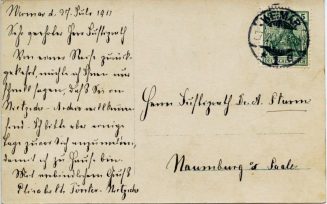 Weimar d. 27. Juli 1911
Sehr geehrter Herr Justizrath
Von einer Reise zurück-
gekehrt, möchte ich Ihnen nur
schnell sagen, daß Sie im
Nietzsche-Archiv willkommen
sind. Ich bitte aber einige
Tage zuvor sich anzumelden,
damit ich zu Hause bin.
Mit verbindlichem Gruß
Elisabeth Förster-Nietzsche
WEIMAR
Herrn Justizrath Dr. A. Sturm
Naumburg a/ Saale